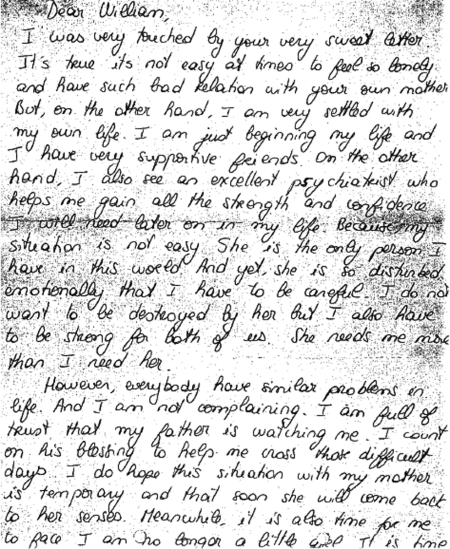 Dear William,
I was very touched by your very sweet letter.
It's true it's not easy at times to feel so lonely
and have such bad relation with your own mother
But, on the other hand, I am very settled with
my own life. I am just beginning my life and
I have very supportive friends. On the other
hand, I also see an excellent psychiatrist who
helps me gain all the strength and confidence
I will need later on in my life. Because my
situation is not easy. She is the only person I
have in this world. And yet, she is so disturbed
emotionally that I have to be careful. I do not
want to be destroyed by her but I also have
to be strong for both of us. She needs me more
than I need her.
However, everybody have similar problems in
life. And I am not complaining. I am full of
trust that my father is watching me. I count
on his blessing to help me cross those difficult
days. I do hope this situation with my mother
is temporary and that soon she will come back
to her senses. Meanwhile, it is also time for me
to face I am no longer a little girl It is time